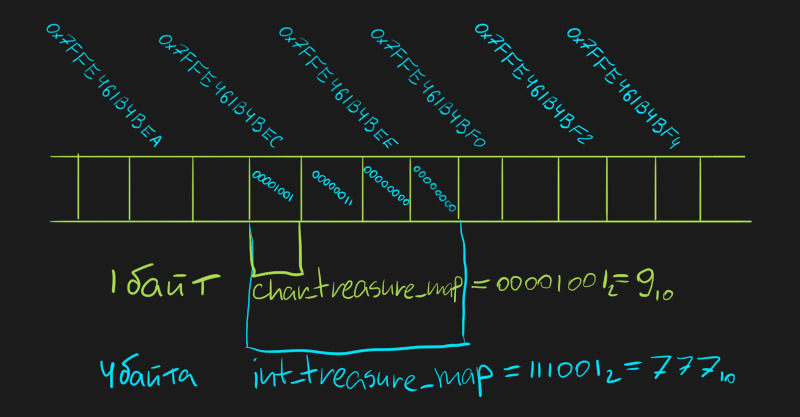 0x7FFE461B4BEA
0x7FFE461B4BEC
0x7FFE461B4BEE
0x7FFE461B4BF0
0x7FFE461B4BF2
0x7FFE461B4BF4
00001001 00000011 00000000 00000000
1 байт char_treasure_map = 00001001₂ = 9₁₀
4 байта int_treasure_map = 111001₂ = 777₁₀